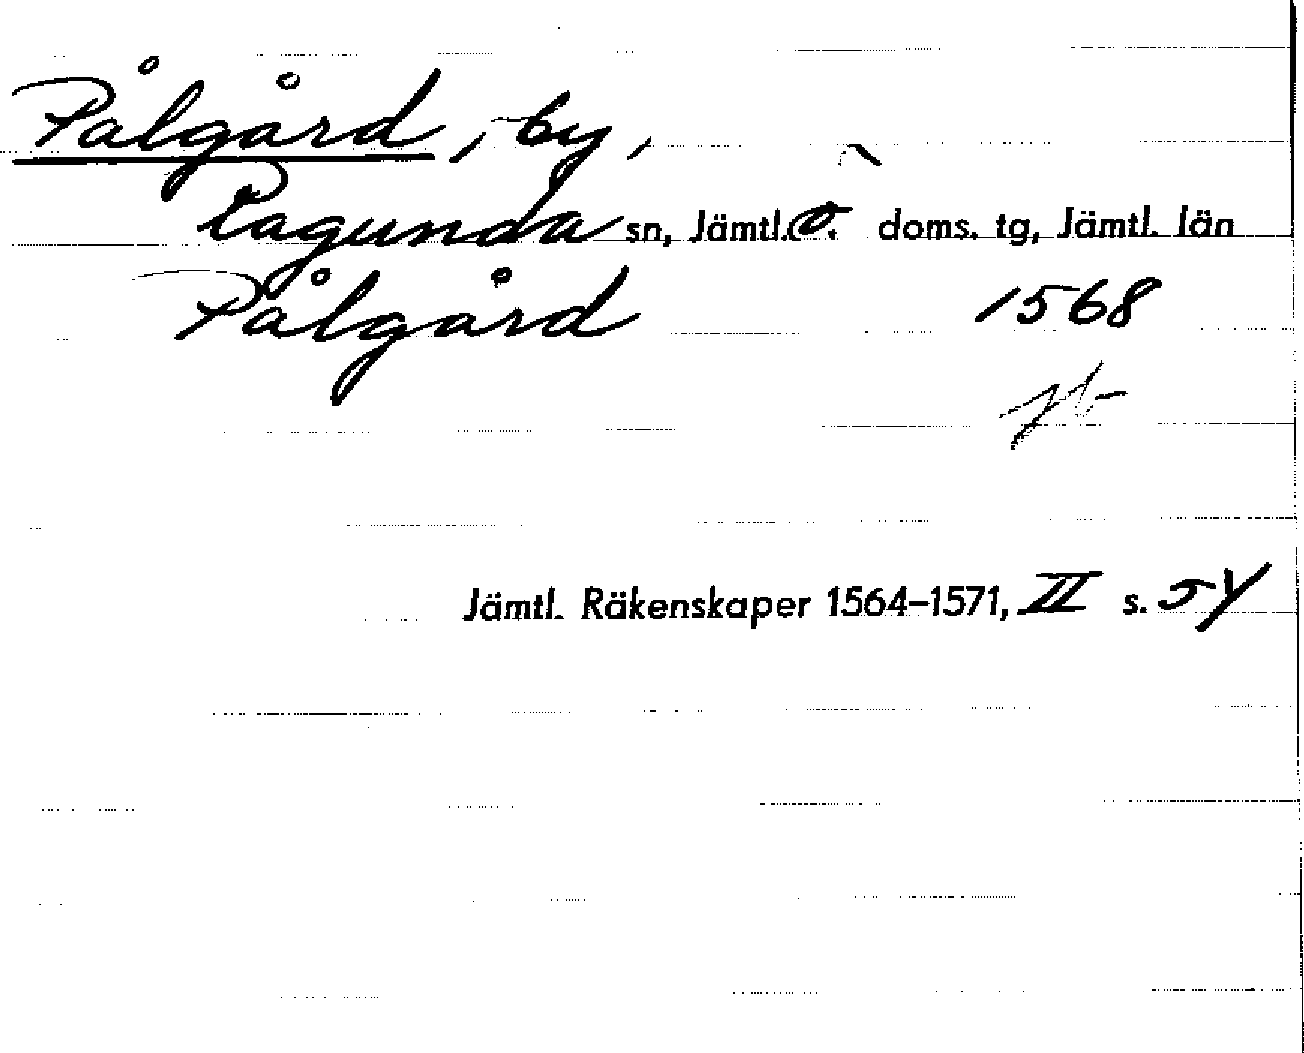 Pålgård, by,
Ragunda sn, Jämtl. ö. doms. tg, Jämtl. län
Pålgård 1568
jb
Jämtl. Räkenskaper 1564–1571, II s. 54